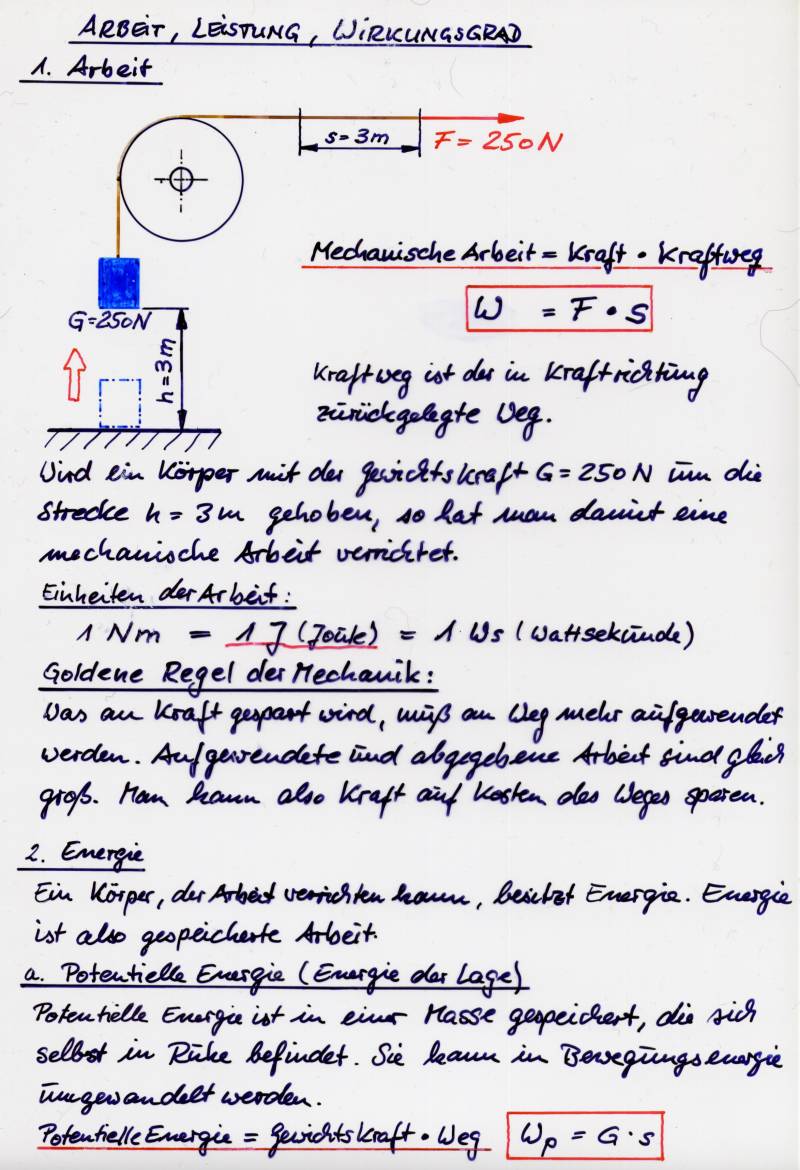 ARBEIT, LEISTUNG, WIRKUNGSGRAD
1. Arbeit
s = 3m
F = 250N
Mechanische Arbeit = Kraft • Kraftweg
W = F • s
G = 250N
h = 3m
Kraftweg ist der in Kraftrichtung
zurückgelegte Weg.
Wird ein Körper mit der Gewichtskraft G = 250 N um die
Strecke h = 3m gehoben, so hat man damit eine
mechanische Arbeit verrichtet.
Einheiten der Arbeit:
1 Nm = 1 J (Joule) = 1 Ws (Wattsekunde)
Goldene Regel der Mechanik:
Was an Kraft gespart wird, muß an Weg mehr aufgewendet
werden. Aufgewendete und abgegebene Arbeit sind gleich
groß. Man kann also Kraft auf Kosten des Weges sparen.
2. Energie
Ein Körper, der Arbeit verrichten kann, besitzt Energie. Energie
ist also gespeicherte Arbeit.
a. Potentielle Energie (Energie der Lage)
Potentielle Energie ist in einer Masse gespeichert, die sich
selbst in Ruhe befindet. Sie kann in Bewegungsenergie
umgewandelt werden.
Potentielle Energie = Gewichtskraft • Weg Wp = G · s